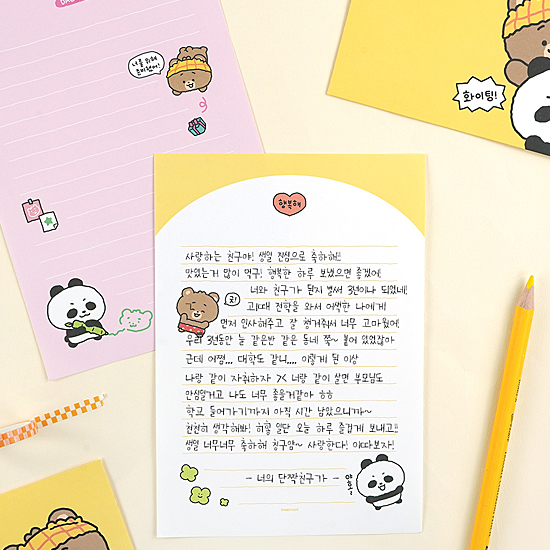 너를 위해
준비했어!
화이팅!
행복해
사랑하는 친구야! 생일 진심으로 축하해!!
맛있는거 많이 먹구! 행복한 하루 보냈으면 좋겠어!
너와 친구가 된지 벌써 3년이나 되었네!
고1때 전학을 와서 어색한 나에게
먼저 인사해주고 잘 챙겨줘서 너무 고마웠어!
우리 3년동안 늘 같은반 같은 동네 쭉~ 붙어 있었잖아
근데 어쩜... 대학도 같니.... 이렇게 된 이상
나랑 같이 자취하자 ㅋㅋ 너랑 같이 살면 부모님도
안심할거고 나도 너무 좋을거같아 ㅎㅎ
학교 들어가기까지 아직 시간 남았으니까~
천천히 생각해봐! 히힣 일단 오늘 하루 즐겁게 보내고!!
생일 너무너무 축하해 칭구얌~ 사랑한다! 이따보자!
- 너의 단짝친구가 -